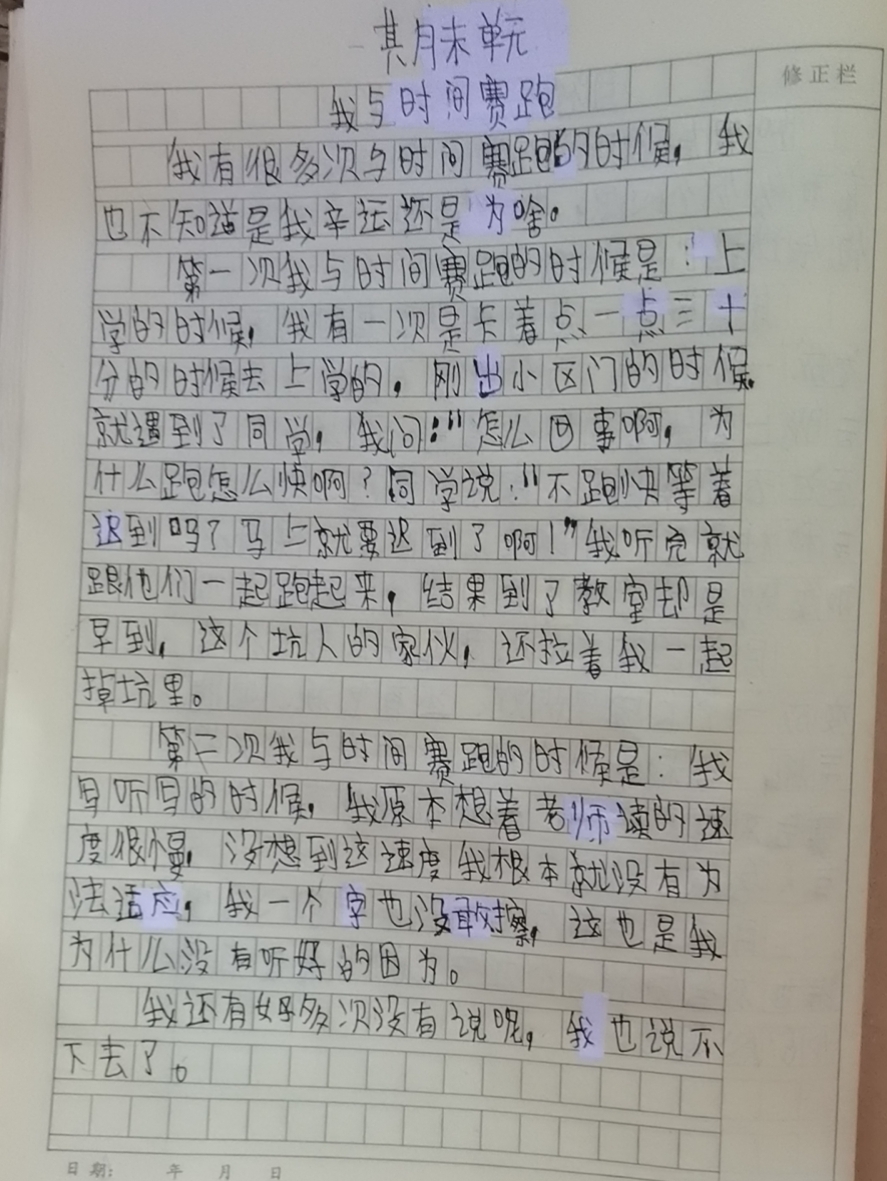 其月末单元
修正栏
我与时间赛跑
我有很多次与时间赛跑的时候，我
也不知道是我辛运还是为啥。
第一次我与时间赛跑的时候是：上
学的时候，我有一次是卡着点一点三十
分的时候去上学的，刚出小区门的时候，
就遇到了同学，我问："怎么回事啊，为
什么跑怎么快啊？同学说："不跑快等着
迟到吗？马上就要迟到了啊！"我听完就
跟他们一起跑起来，结果到了教室却是
早到，这个坑人的家伙，还拉着我一起
掉坑里。
第二次我与时间赛跑的时候是：我
写听写的时候，我原本想着老师读的速
度很慢，没想到这速度我根本就没有为
法适应，我一个字也没敢擦，这也是我
为什么没有听好的因为。
我还有好多次没有说呢，我也说不
下去了。
日期： 年 月 日